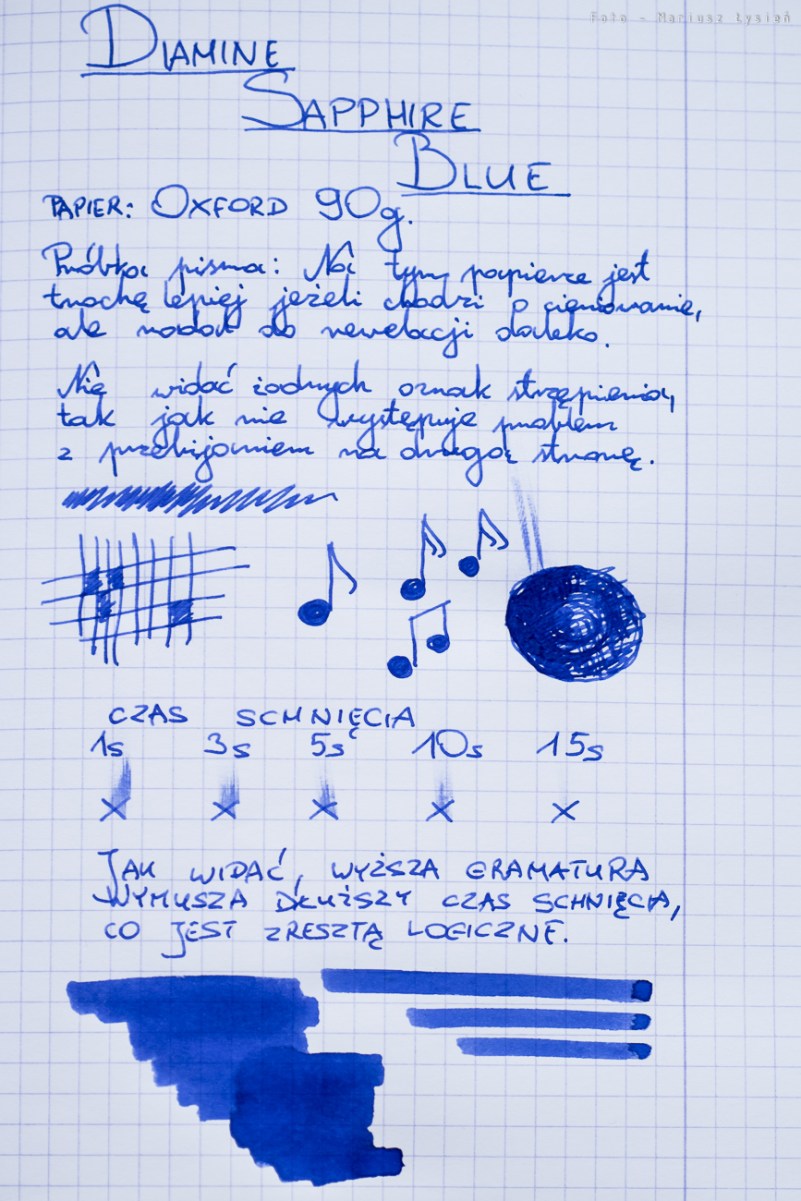 Foto - Mariusz Łysiań
DIAMINE
SAPPHIRE
BLUE
PAPIER: OXFORD 90g.
Próbka pisma: Na tym papierze jest
trochę lepiej jeżeli chodzi o cieniowanie,
ale nadal do rewelacji daleko.
Nie widać żadnych oznak strzępienia,
tak jak nie występuje problem
z przebijaniem na drugą stronę.
CZAS SCHNIĘCIA
1s 3s 5s 10s 15s
JAK WIDAĆ, WYŻSZA GRAMATURA
WYMUSZA DŁUŻSZY CZAS SCHNIĘCIA,
CO JEST ZRESZTĄ LOGICZNE.